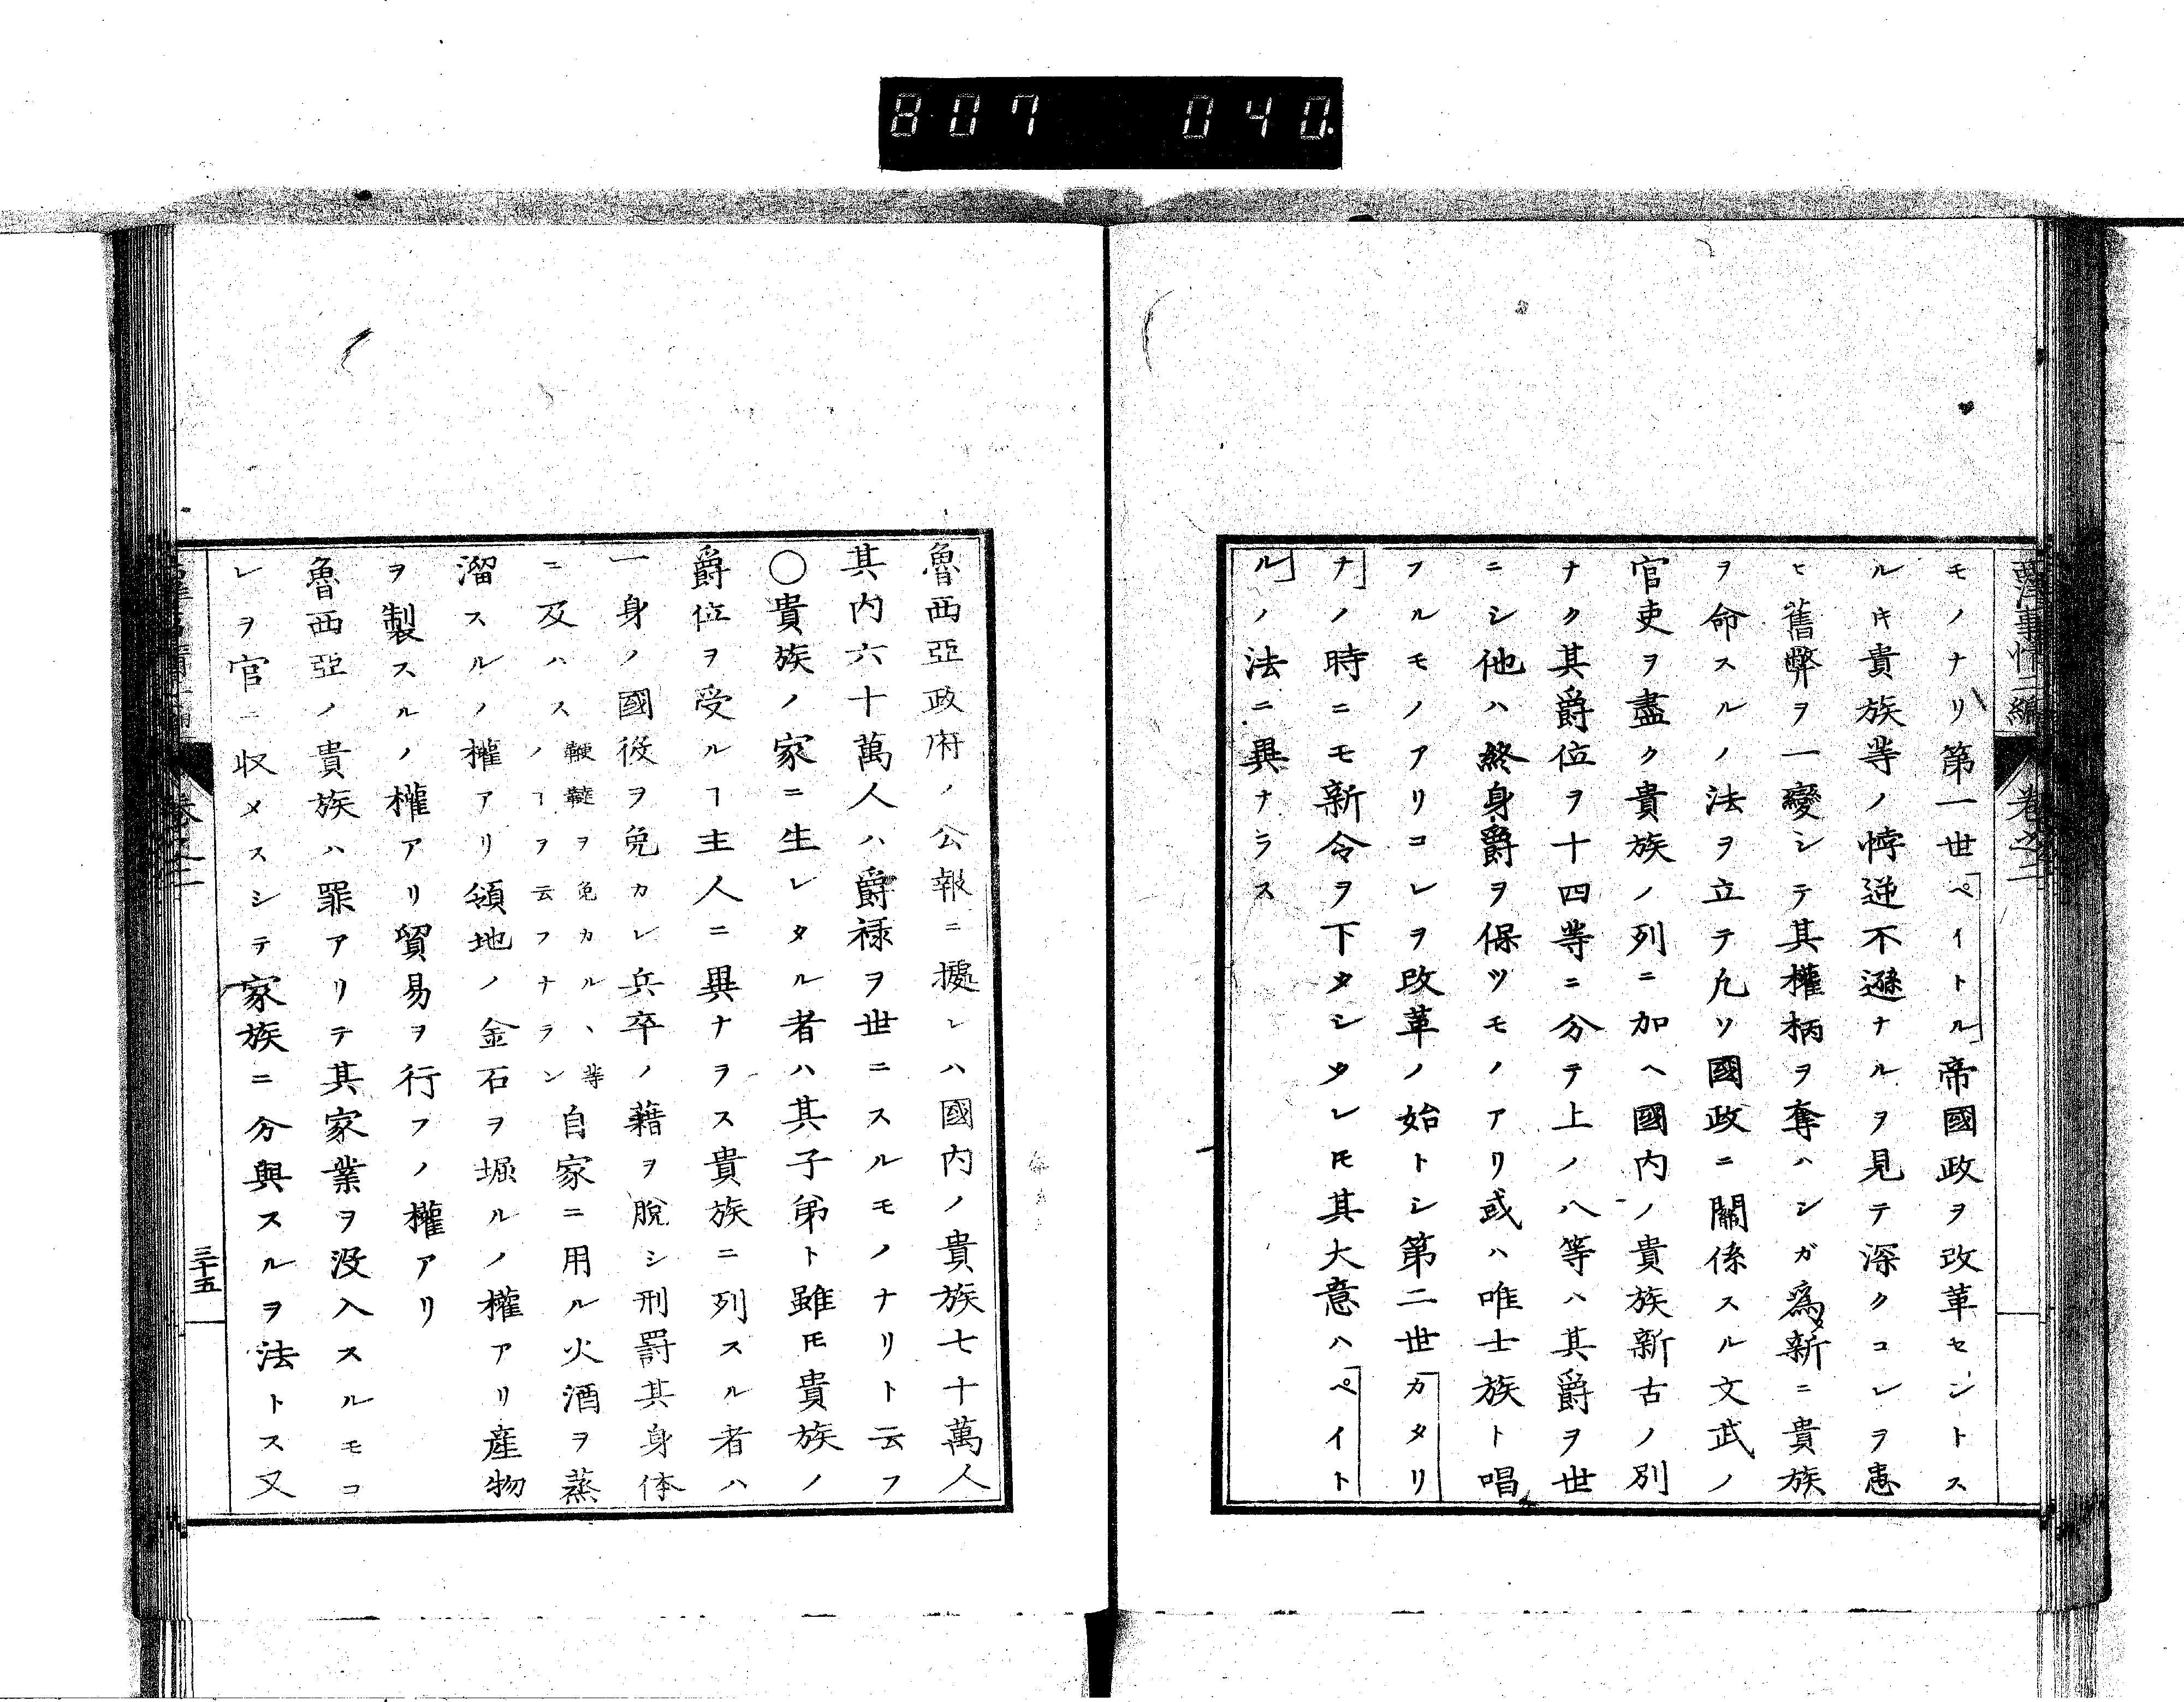 807 040.
西洋事情二編 卷之二
モノナリ第一世「ペイトル」帝國政ヲ改革セントス
ルキ貴族等ノ悖逆不遜ナルヲ見テ深クコレヲ患
ヒ舊弊ヲ一變シテ其權柄ヲ奪ハンガ爲メ新ニ貴族
ヲ命スルノ法ヲ立テ凡ソ國政ニ關係スル文武ノ
官吏ヲ盡ク貴族ノ列ニ加ヘ國内ノ貴族新古ノ別
ナク其爵位ヲ十四等ニ分テ上ノ八等ハ其爵ヲ世
ニシ他ハ終身爵ヲ保ツモノアリ或ハ唯士族ト唱
フルモノアリコレヲ改革ノ始トシ第二世「カタリ
ナ」ノ時ニモ新令ヲ下タシタレ𪜈其大意ハ「ペイト
ル」ノ法ニ異ナラス
魯西亞政府ノ公報ニ據レハ國内ノ貴族七十萬人
其内六十萬人ハ爵禄ヲ世ニスルモノナリト云フ
〇貴族ノ家ニ生レタル者ハ其子弟ト雖𪜈貴族ノ
爵位ヲ受ルヿ主人ニ異ナラス貴族ニ列スル者ハ
一身ノ國役ヲ免カレ兵卒ノ藉ヲ脱シ刑罰其身体
ニ及ハス鞭韃ヲ免カルヽ等ノヿヲ云フナラン自家ニ用ル火酒ヲ蒸
溜スルノ權アリ領地ノ金石ヲ堀ルノ權アリ産物
ヲ製スルノ權アリ貿易ヲ行フノ權アリ
魯西亞ノ貴族ハ罪アリテ其家業ヲ没入スルモコ
レヲ官ニ収メスシテ家族ニ分與スルヲ法トス又
卷之二
三十五